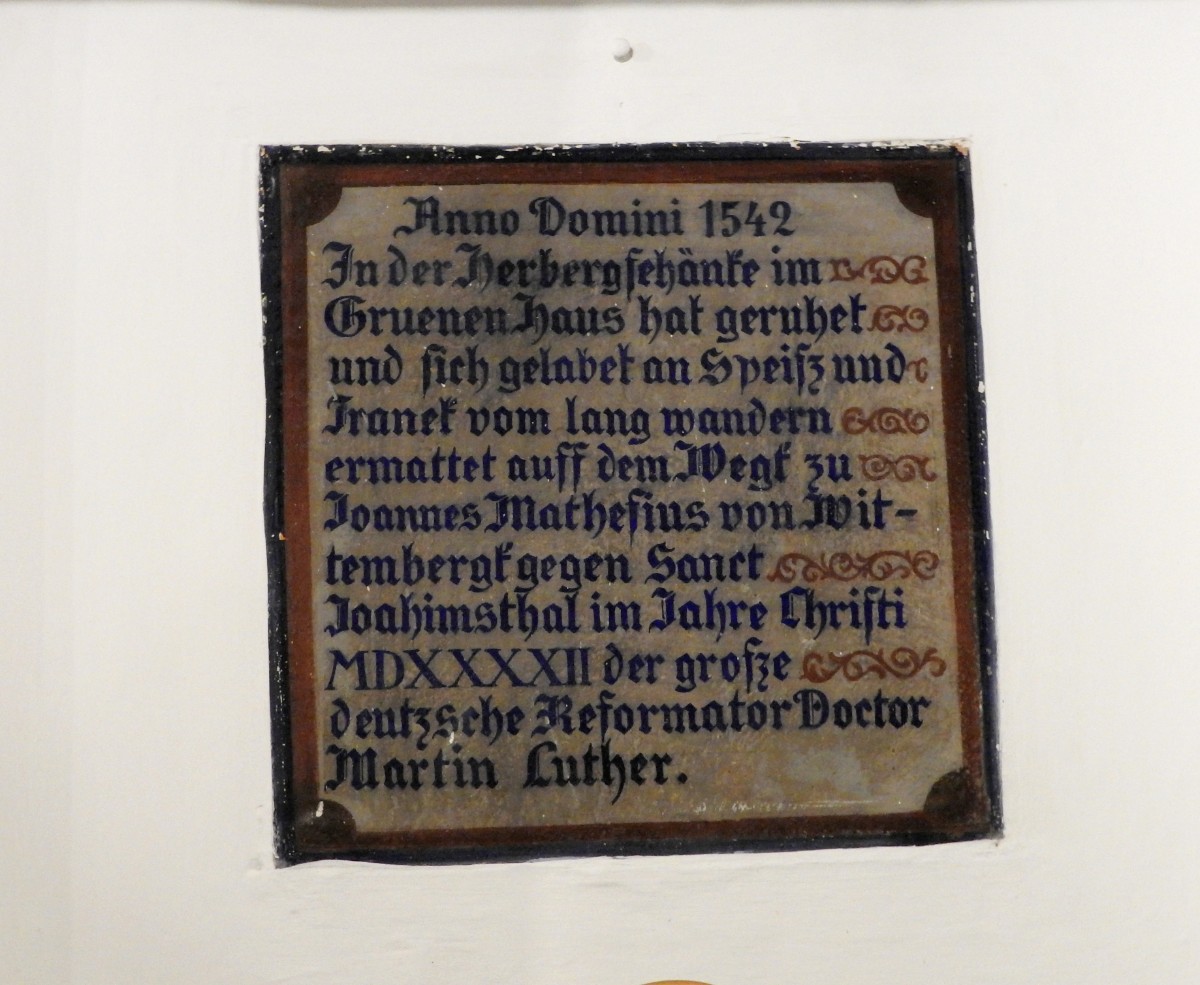 Anno Domini 1542
In der Herbergſchänke im
Gruenen Haus hat geruhet
und ſich gelabet an Speiſz und
Tranck vom lang wandern
ermattet auff dem Wegk zu
Joannes Matheſius von Wit-
tembergk gegen Sanct
Joahimsthal im Jahre Chriſti
MDXXXXII der groſze
deutzsche Reformator Doctor
Martin Luther.